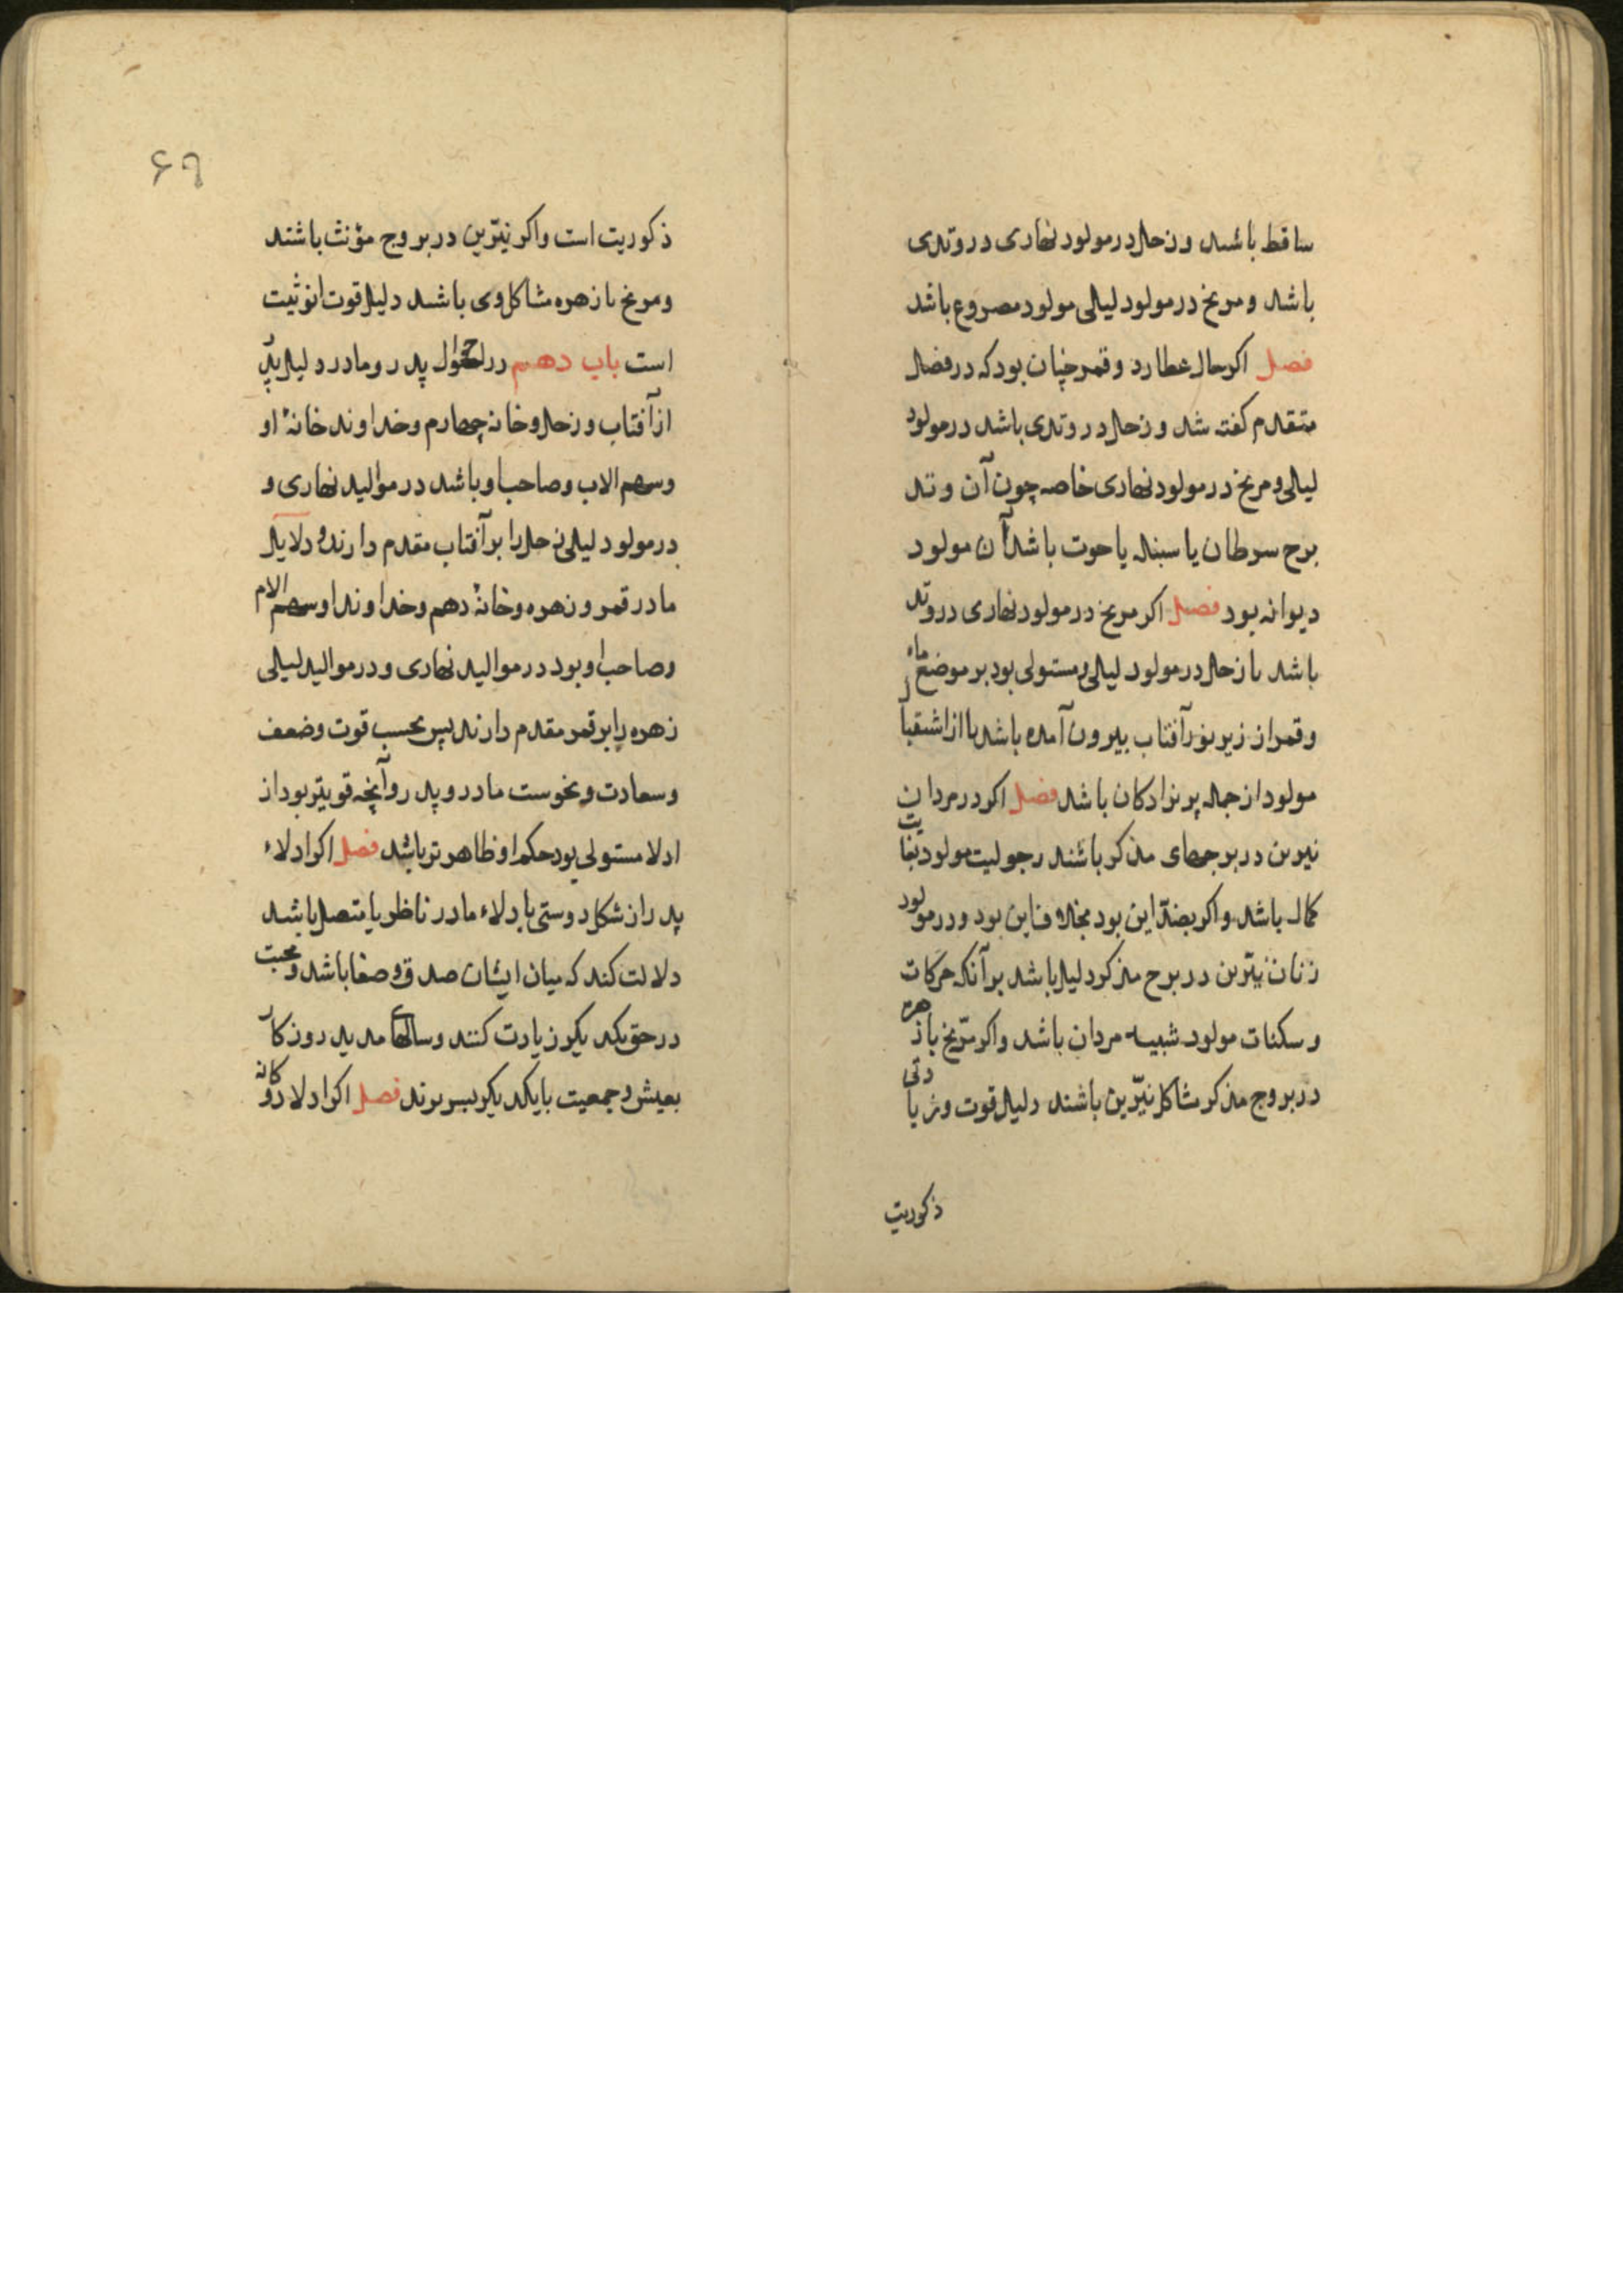 ساقط باشد و زحل در مولود نهاری در وتدی
باشد و مریخ در مولود لیالی مولود مصروع باشد
فصل اکر حال عطارد و قمر چنان بود که در فصل
متقدم کفته شد و زحل در وتدی باشد در مولود
لیالی و مریخ در مولود نهاری خاصه چون آن وتد
برج سرطان یا سنبله یا حوت باشد آن مولود
دیوانه بود فصل اکر مریخ در مولود نهاری در وتد
باشد یا زحل در مولود لیالی و مستولی بود بر موضع ماه
و قمر از زیر نور آفتاب بیرون آمده باشد یا از استقبال
مولود از جمله پریزادکان باشد فصل اکر در مردان
نیرین در برجهای مذکر باشند رجولیت مولود بغایت
کمال باشد و اکر بضد این بود بخلاف این بود و در مولود
زنان نیّرین در برج مذکر دلیل باشد بر آنکه حرکات
و سکنات مولود شبیه مردان باشد و اکر مرّیخ با زهره
در بروج مذکر مشاکل نیّرین باشند دلیل قوت و زیادتی
ذکوریت
۶۹
ذکوریت است و اکر نیّرین در بروج مؤنث باشند
و مریخ با زهره مشاکل وی باشد دلیل قوت انوثیت
است باب دهم در احوال پدر و مادر دلیل پدر
از آفتاب و زحل و خانه چهارم و خداوند خانهٔ او
و سهم الاب و صاحب او باشد در موالید نهاری و
در مولود لیلی زحل را بر آفتاب مقدم دارند و دلایل
مادر قمر و زهره و خانهٔ دهم و خداوند او و سهم الام
و صاحب او بود در موالید نهاری و در موالید لیالی
زهره را بر قمر مقدم دارند پس بحسب قوت و ضعف
و سعادت و نحوست مادر و پدر و آنچه قویتر بود از
ادلا مستولی بود حکم او ظاهرتر باشد فصل اکر ادلاء
پدر از شکل دوستی با دلاء مادر ناظر یا متصل باشد
دلالت کند که میان ایشان صدق و صفا باشد و محبت
در حق یکدیکر زیادت کنند و سالهای مدید روزکار
بعیش و جمعیت با یکدیکر بسر برند فصل اکر ادلا دوکانه